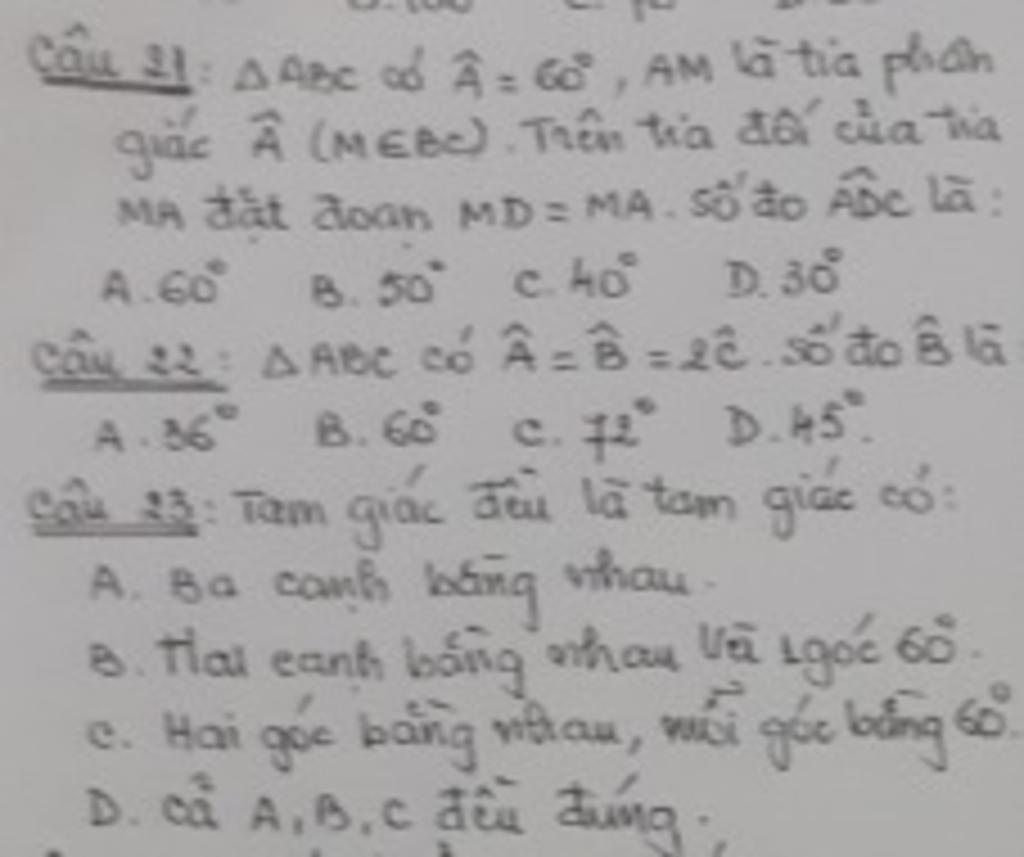 Câu 21: △ABC có Â = 60°, AM là tia phân
giác Â (M∈BC). Trên tia đối của tia
MA đặt đoạn MD = MA. Số đo ADC là:
A. 60° B. 50° C. 40° D. 30°
Câu 22: △ABC có Â = B̂ = 2Ĉ. Số đo B̂ là
A. 36° B. 60° C. 72° D. 45°.
Câu 23: Tam giác đều là tam giác có:
A. Ba cạnh bằng nhau.
B. Hai cạnh bằng nhau và 1 góc 60°.
C. Hai góc bằng nhau, mỗi góc bằng 60°.
D. Cả A, B, C đều đúng.